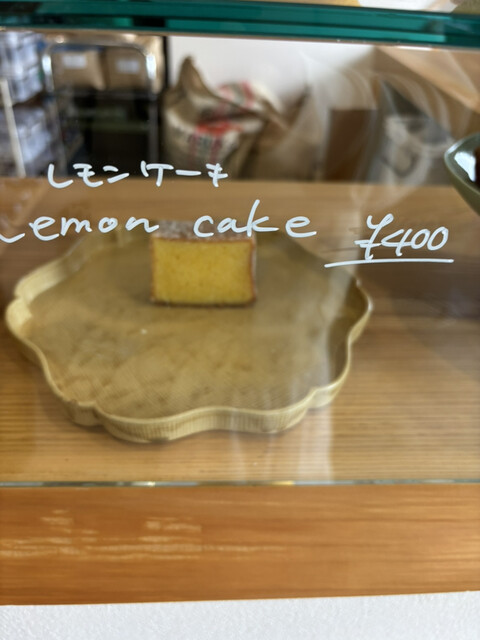 レモンケーキ
Lemon cake ¥400